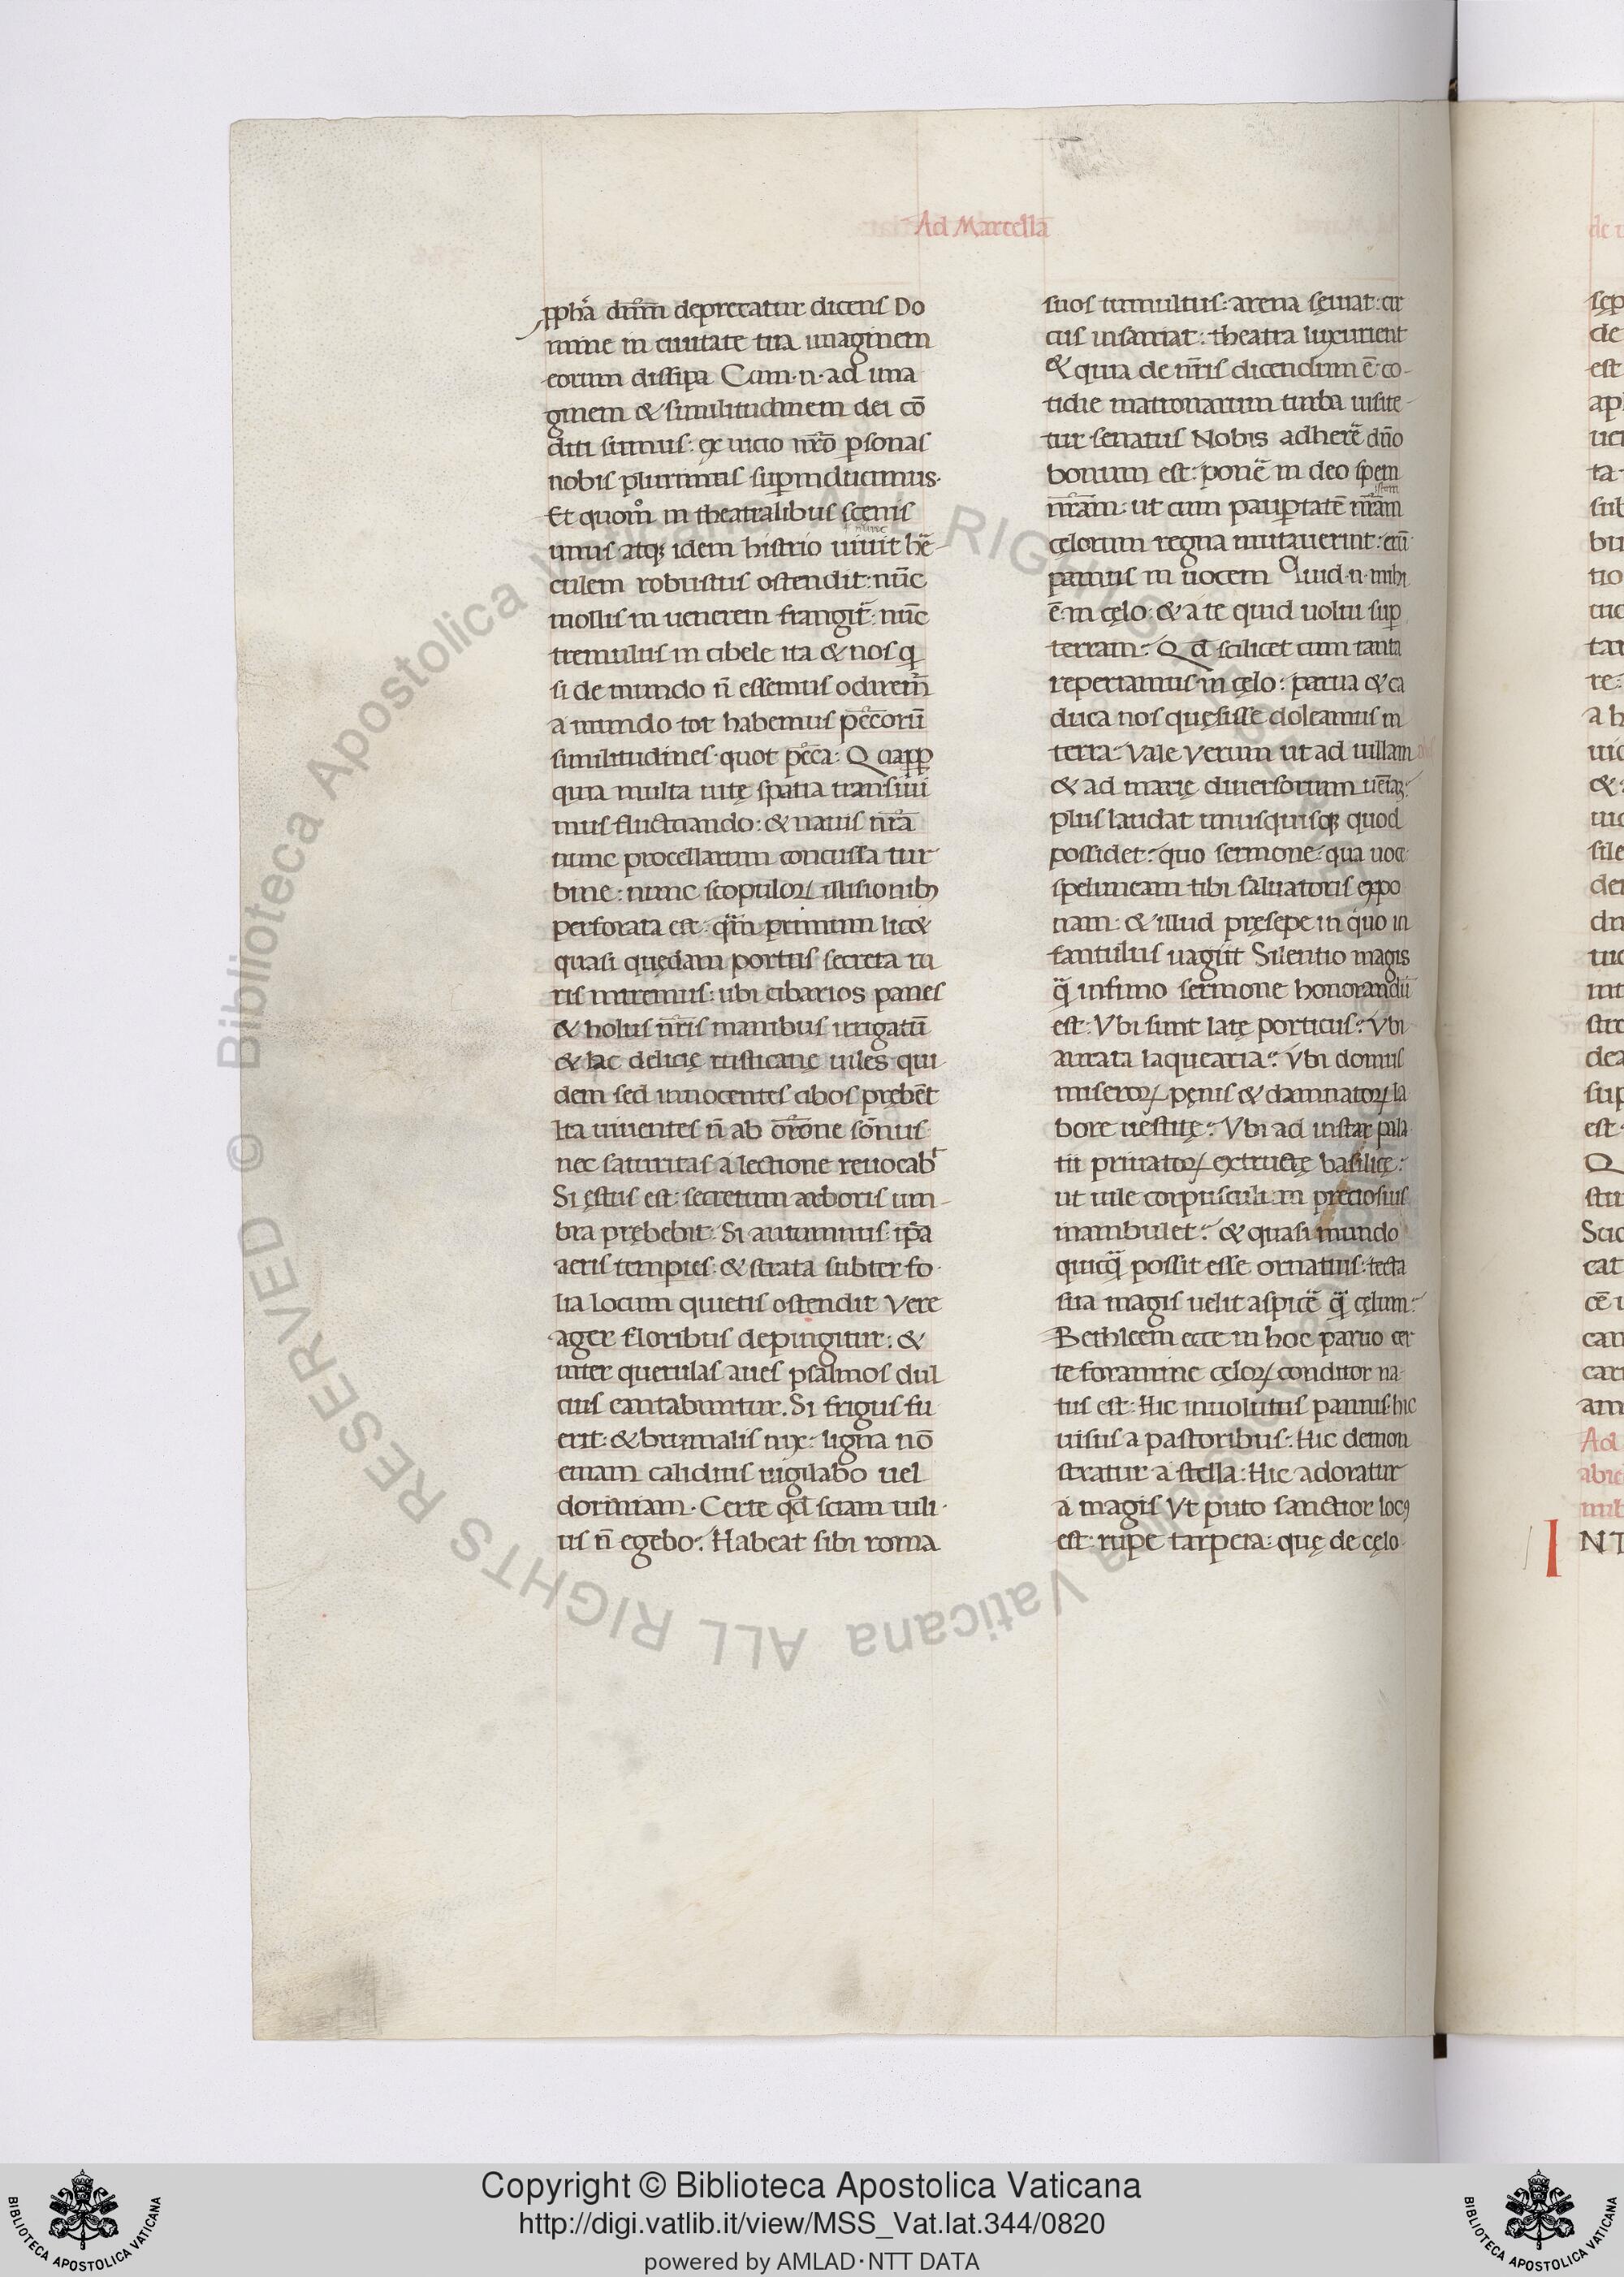 Ad Marcellā
ꝓph̄a dn̄m deprecatur dicens Do
mine in ciuitate tua imaginem
eorum dissipa Cum·n·ad ima
ginem & similitudinem dei cō
diti sumus: ex uicio nr̄o ꝑsonas
nobis plurimas suꝑinducimus·
Et quom̊ in theatralibus scenis
unus atqꝫ idem histrio
culem robustus ostendit: nūc
mollis in uenerem frangit̄: nūc
tremulus in cibele ita & nos q
si de mundo n̄ essemus odirem̄
a mundo tot habemus pec̄corū
similitudines quot pec̄ca:
quia multa uitę spatia transiui
mus fluctuando: & nauis nr̄a
nunc procellarum concussa tur
bine: nunc scopuloꝝ illisionibꝫ
perforata est: qm̄ primum lic&
quasi quędam portus secreta ru
ris intremus: ubi cibarios panes
& holus nr̄is manibus irrigatū
& lac delicię rusticanę uiles qui
dem sed innocentes cibos prębēt
Ita uiuentes n̄ ab or̄one sōnus
nec saturitas a lectione reuocab̄t
Si ęstus est: secretum arboris um
bra prębebit: Si autumnus: ip̄a
aeris temperies: & strata subter fo
lia locum quietis ostendit Vere
ager floribus depingitur: &
inter querulas aues psalmos dul
cius cantabuntur. Si frigus fu
erit: & brumalis nix: ligna nō
emam calidius uigilabo uel
dormiam· Certe qd̄ sciam uili
us n̄ egebo:. Habeat sibi roma
suos tumultus: arena sęuiat: cir
cus insaniat: theatra luxurient
& quia de nr̄is dicendum ē: co-
tidie matronarum turba uisite-
tur senatus Nobis adherē dn̄o
bonum est: ponē in deo spem
nr̄am: ut cum pauꝑtatē
cęlorum regna mutauerint:
pamus in uocem Quid·n·mihi
ē·in cęlo: & a te quid uolui suꝑ
terram: Qd̄ scilicet cum tanta
reperiamus in cęlo: parua & ca
duca nos quęsisse doleamus in
terra: Vale Verum ut ad uillam
& ad marię diuersorium
plus laudat unusquisqꝫ quod
possidet: quo sermone: qua uoce
speluncam tibi saluatoris expo
nam: & illud pręsepe in quo in
fantulus uagiit Silentio magis
q̄ infimo sermone honorandū
est: Vbi sunt latę porticus: Vbi
aurata laquearia: Vbi domus
miseroꝝ pęnis & damnatoꝝ la
bore uestitę: Vbi ad instar pala
tii priuatoꝝ extructę basilicę:
ut uile corpusculum preciosius
inambulet: & quasi mundo
quicq̄ possit esse ornatius: tecta
sua magis uelit aspicē q̄ cęlum:
Bethleem ecce in hoc paruo ter
re foramine cęloꝝ conditor na
tus est: Hic inuolutus pannis: hic
uisus a pastoribus: Hic demon
stratur a stella: Hic adoratur
a magis Vt puto sanctior locꝰ
est: rupe tarpeia: quę de cęlo
Ad
NT
© Biblioteca Apostolica Vaticana ALL RIGHTS RESERVED
© Biblioteca Apostolica Vaticana ALL RIGHTS RESERVED
Copyright © Biblioteca Apostolica Vaticana
http://digi.vatlib.it/view/MSS_Vat.lat.344/0820
powered by AMLAD·NTT DATA
BIBLIOTECA APOSTOLICA VATICANA
BIBLIOTECA APOSTOLICA VATICANA